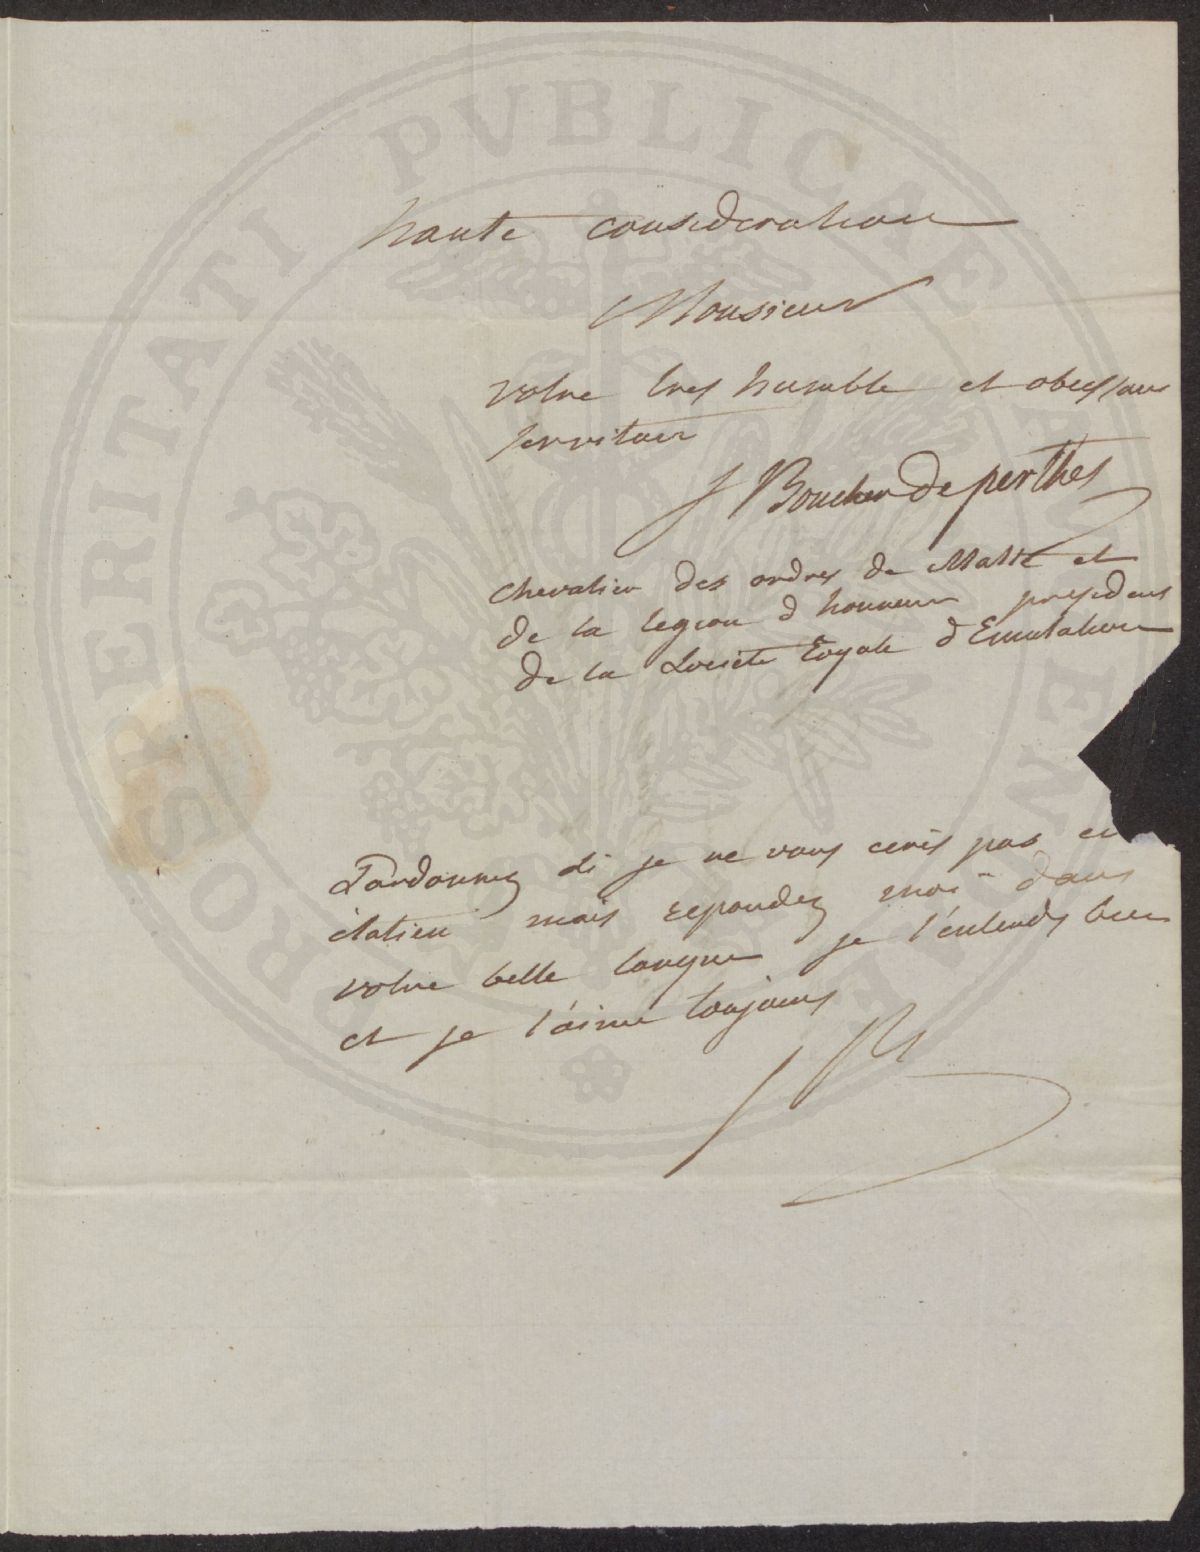 haute consideration
Monsieur
votre tres humble et obeissant
serviteur
J Boucher de perthes
chevalier des ordres de Malte et
de la legion d honneur president
de la Societe Royale d Emulation
Pardonnez si je ne vous ecris pas en
italien mais repondez moi dans
votre belle langue je l'entends bien
et je l'aime toujours
PROSPERITATI PVBLICAE